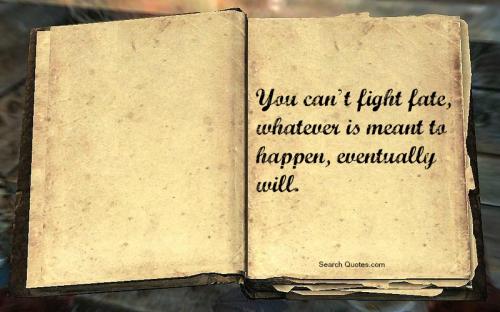 You can't fight fate,
whatever is meant to
happen, eventually
will.
Search Quotes.com